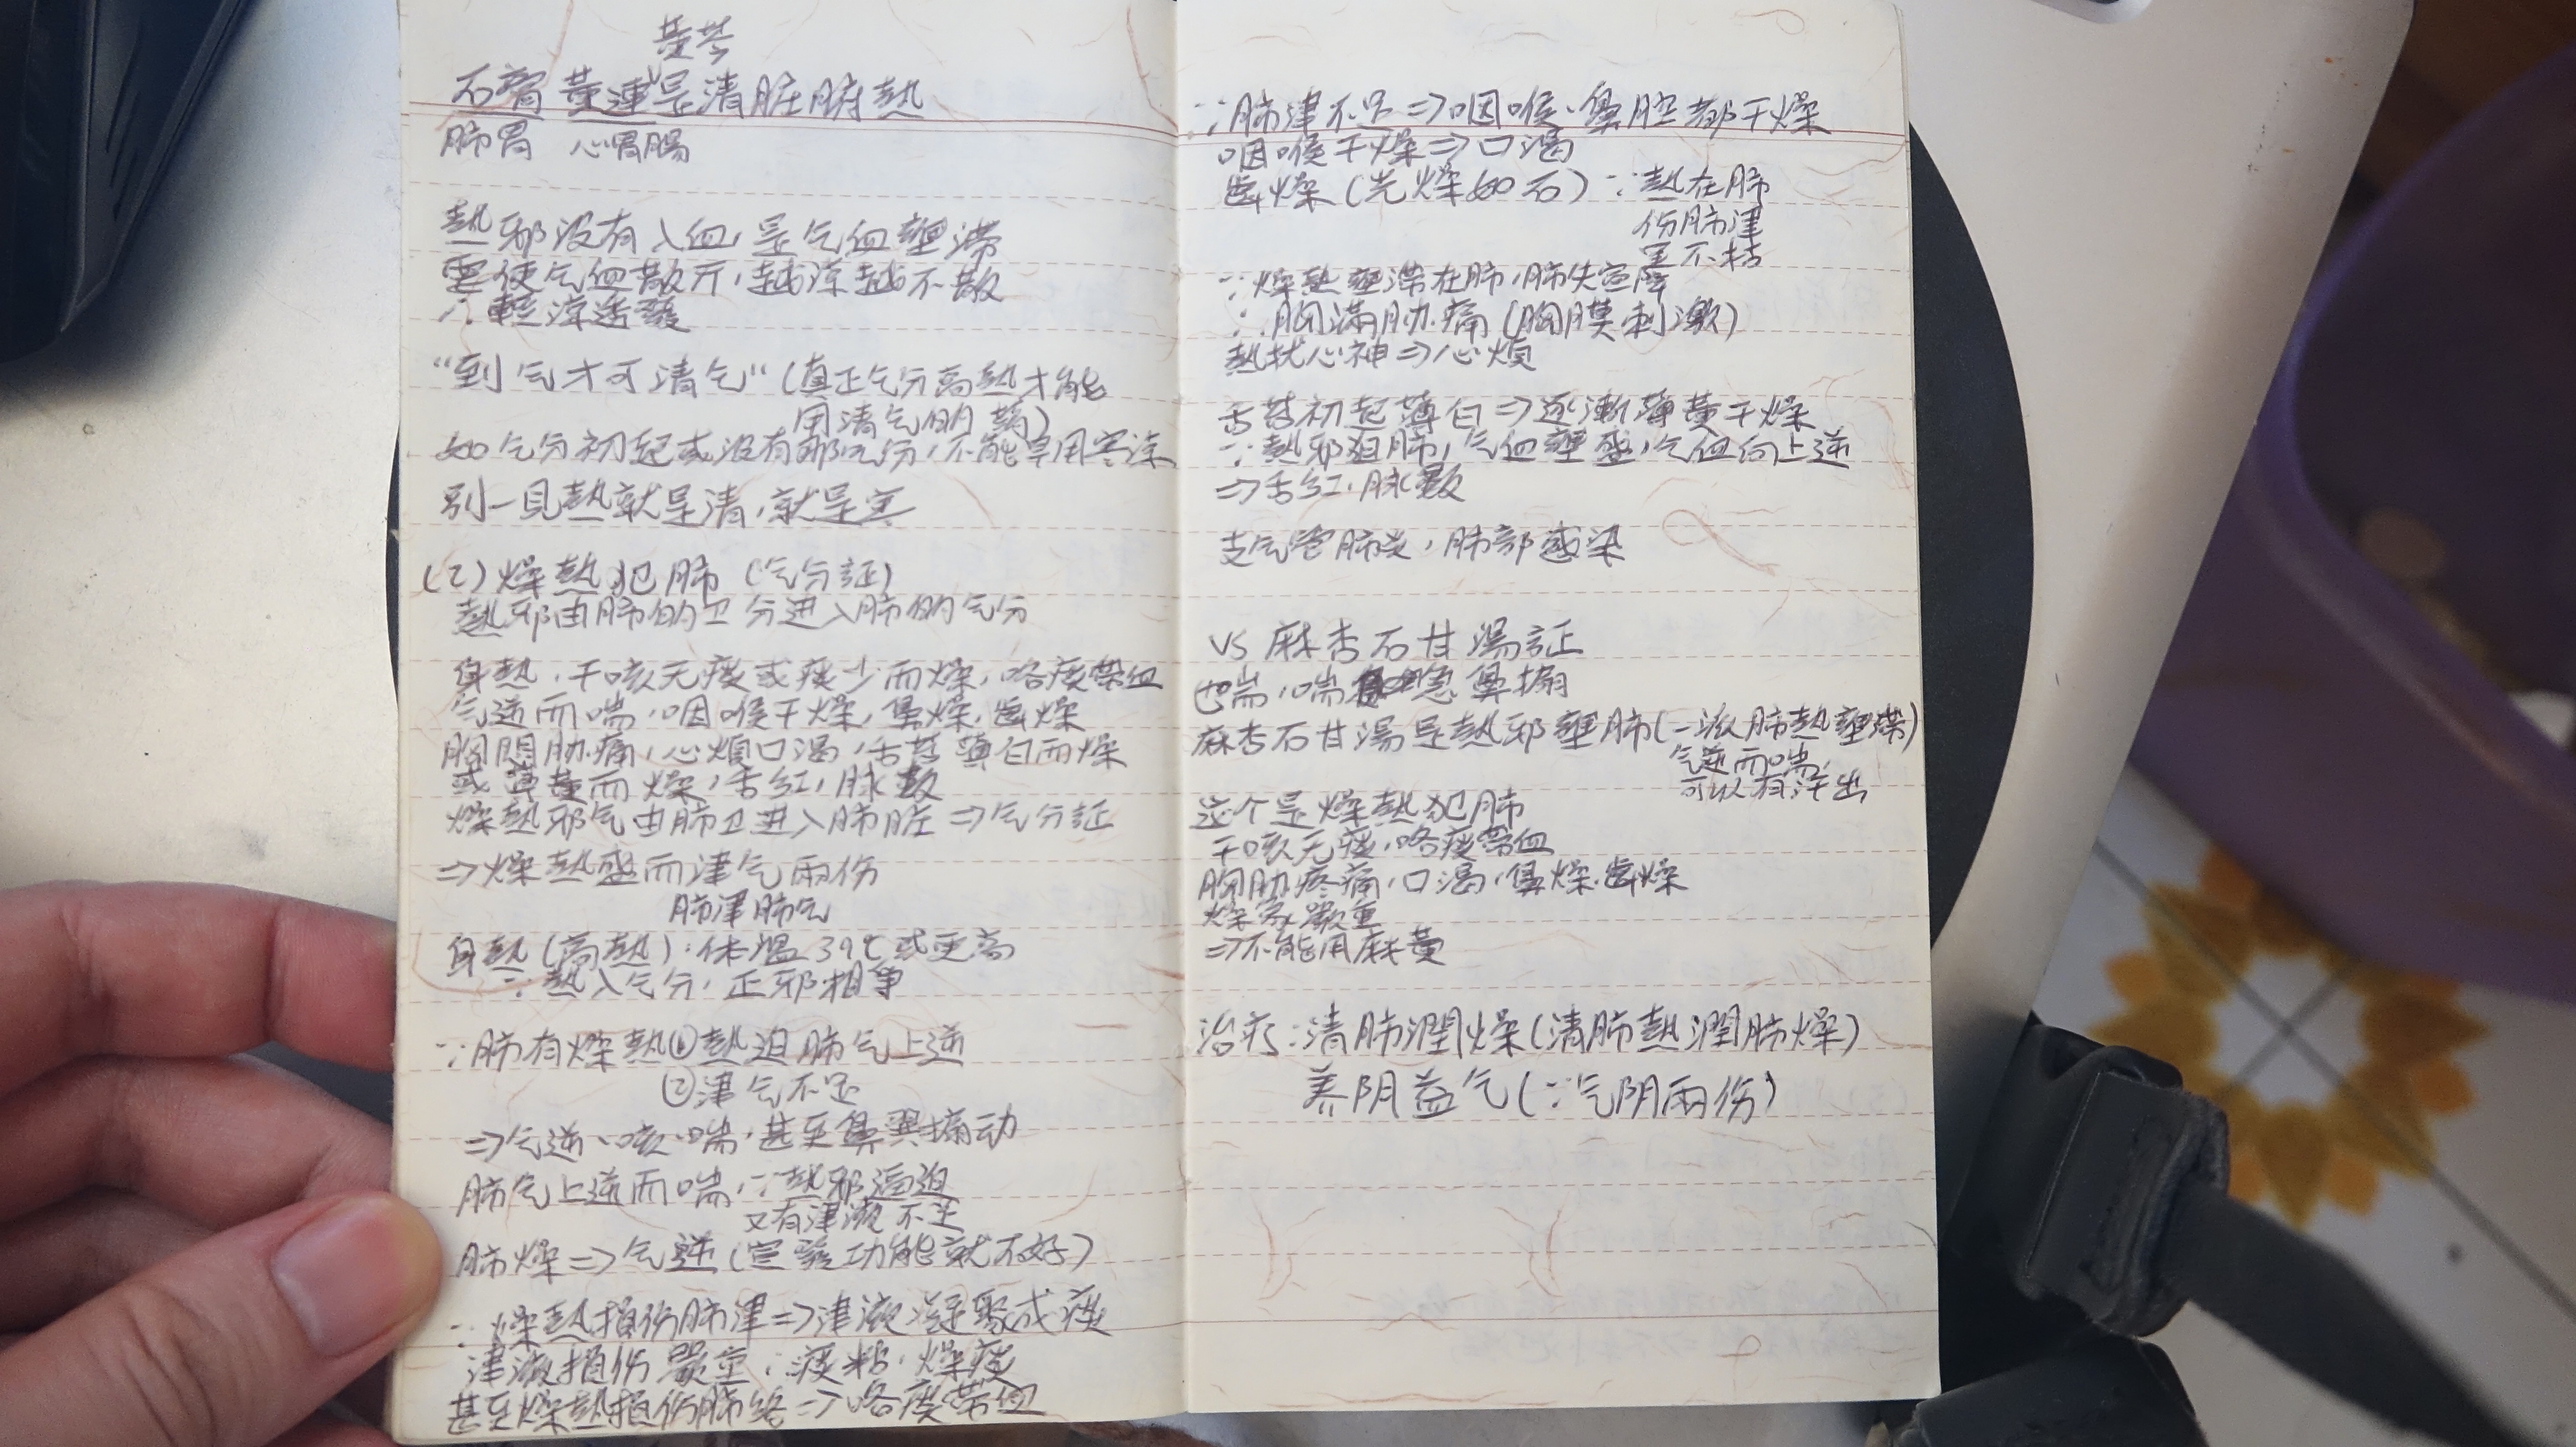 黃芩
石膏 黃連是清脏腑熱
肺胃 心胃腸
熱邪没有入血,是气血壅滯
要使气血散开,越凉越不散
∴輕凉透發
“到气才可清气“(真正气分高熱才能
用清气的葯)
如气分初起或没有那气份,不能早用寒凉
别一見熱就是清,就是寒
(2)燥熱犯肺(气分証)
熱邪由肺的卫分进入肺的气分
身熱,干咳无痰或痰少而燥,咯痰帶血
气逆而喘,咽喉干燥,鼻燥,齒燥
胸悶肋痛,心煩口渴,舌苔薄白而燥
或薄黃而燥,舌红,脉数
燥熱邪气由肺卫进入肺脏⇒气分証
⇒燥熱盛而津气兩伤
肺津肺气
身熱(高熱):体溫39℃或更高
∵熱入气分,正邪相争
∵肺有燥熱①熱迫肺气上逆
②津气不足
⇒气逆、咳、喘,甚至鼻翼搧动
肺气上逆而喘,∵熱邪逼迫
又有津液不足
肺燥⇒气逆(宣發功能就不好)
∵燥熱損伤肺津⇒津液凝聚成痰
津液損伤嚴重∴痰粘,燥痰
甚至燥熱損伤肺络⇒咯痰帶血
∵肺津不足⇒咽喉、鼻腔都干燥
咽喉干燥⇒口渴
齒燥(光燥如石)∵熱在肺
伤肺津
至不枯
∵燥熱壅滯在肺,肺失宣降
∴胸滿肋痛(胸膜刺激)
熱扰心神⇒心煩
舌苔初起薄白⇒逐漸薄黃干燥
∵熱邪迫肺,气血壅盛,气血向上逆
⇒舌红,脉数
支气管肺炎,肺部感染
VS 麻杏石甘湯証
也喘,喘急鼻搧
麻杏石甘湯是熱邪壅肺(一派肺熱壅滯)
气逆而喘,
可以有汗出
这个是燥熱犯肺
干咳无痰,咯痰帶血
胸肋疼痛,口渴,鼻燥,齒燥
燥象嚴重
⇒不能用麻黃
治疗:清肺潤燥(清肺熱潤肺燥)
养阴益气(∵气阴兩伤)